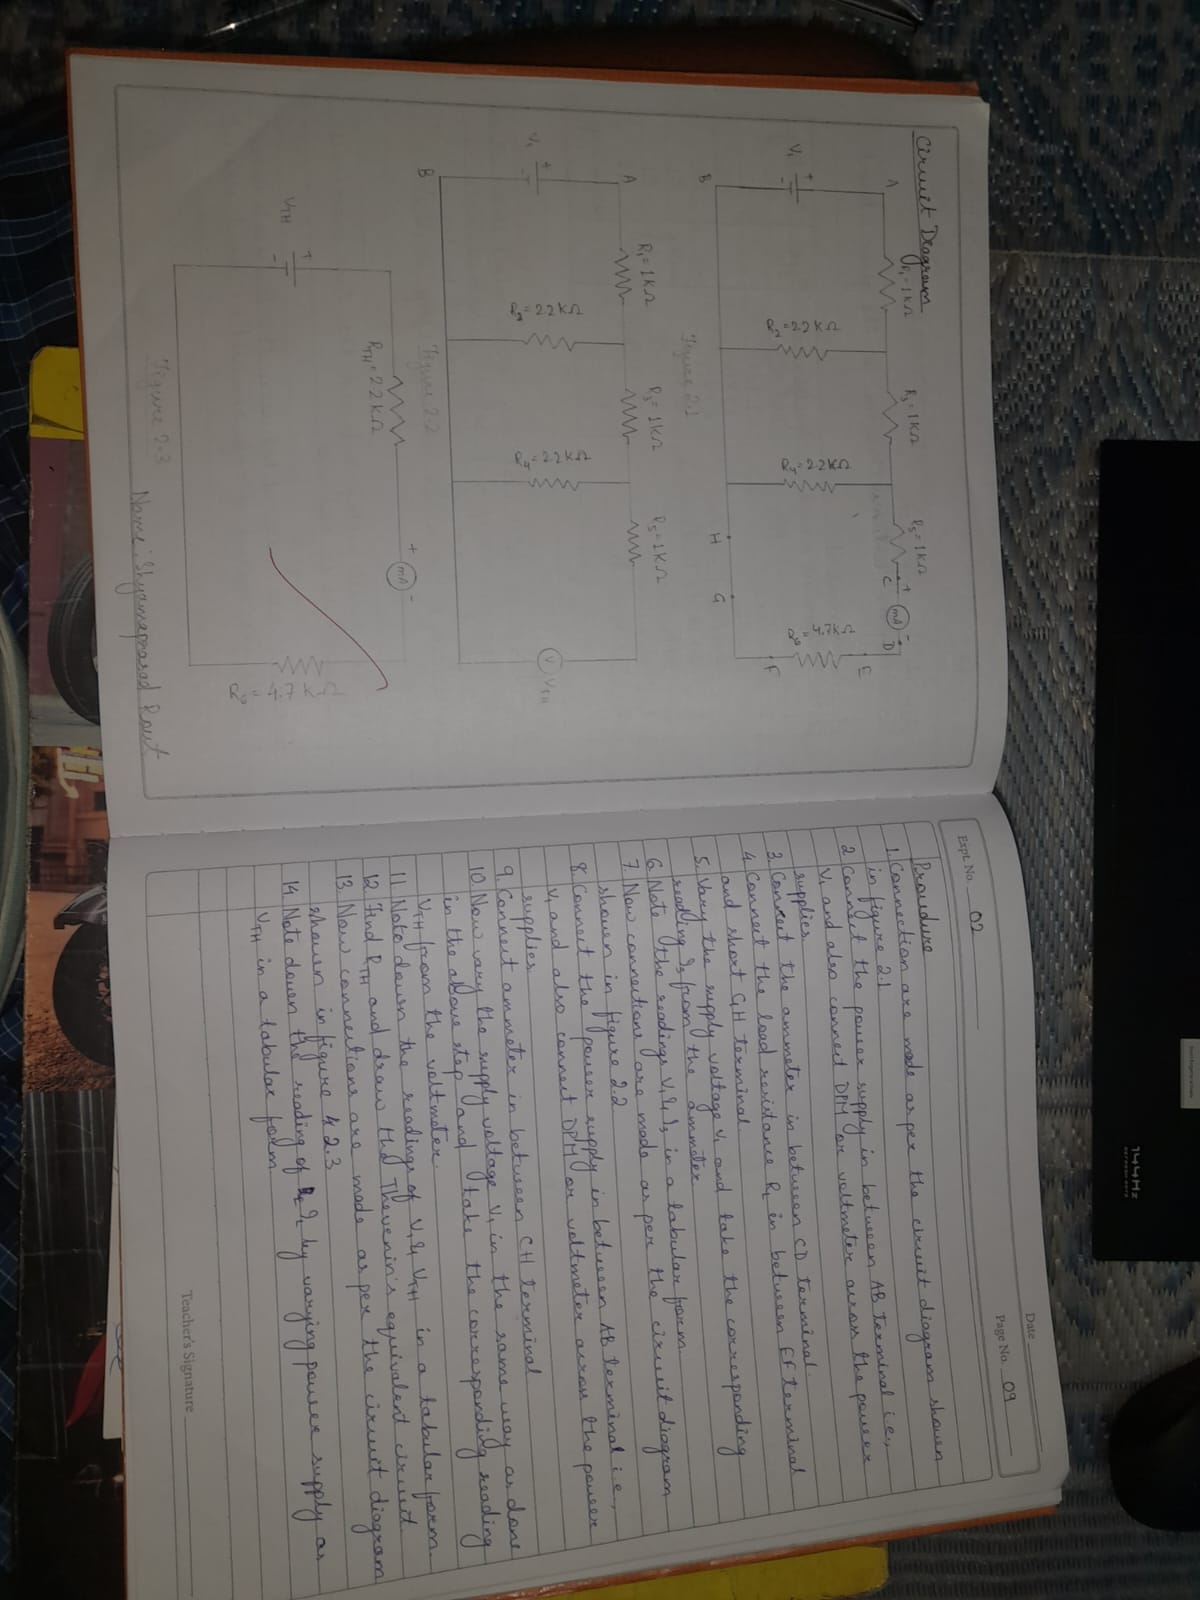 144Hz
REFRESH RATE
Circuit Diagram
R₁=1KΩ
R₃=1KΩ
R₅=1KΩ
A
+
C
mA
-
D
E
V₁
+
-
R₂=2.2KΩ
R₄=2.2KΩ
R₆=4.7KΩ
F
B
H
G
Figure 2.1
R₁=1KΩ
R₃=1KΩ
R₅=1KΩ
A
V₁
+
-
R₂=2.2KΩ
R₄=2.2KΩ
V
VTH
B
Figure 2.2
+
mA
-
RTH=2.2KΩ
VTH
+
-
R₆=4.7KΩ
Figure 2.3
Name: Shyamaprasad Rout
Date
Page No. 09
Expt. No. 02
Proudure
1. Connection are made as per the circuit diagram shown
in figure 2.1
2 Connect the power supply in between AB terminal i.e.,
V₁ and also connect DPM or voltmeter across the power
supplies.
3. Connect the ammeter in between CD terminal.
4 Connect the load resistance RL in between EF terminal
and short GH terminal.
5. Vary the supply voltage V₁ and take the corresponding
reading I₃ from the ammeter.
6. Note the readings V₁ & I₃ in a tabular form.
7. Now connections are made as per the circuit diagram
shown in figure 2.2
8. Connect the power supply in between AB terminal i.e.,
V₁ and also connect DPM or voltmeter across the power
supplies.
9. Connect ammeter in between CH terminal
10. Now vary the supply voltage V₁ in the same way as done
in the above step and take the corresponding reading
VTH from the voltmeter.
11. Note down the readings of V₁ & VTH in a tabular form.
12. Find RTH and draw the Thevenin's equivalent circuit.
13. Now connections are made as per the circuit diagram
shown in figure 2.3
14. Note down the reading of IL by varying power supply as
VTH in a tabular form.
Teacher's Signature